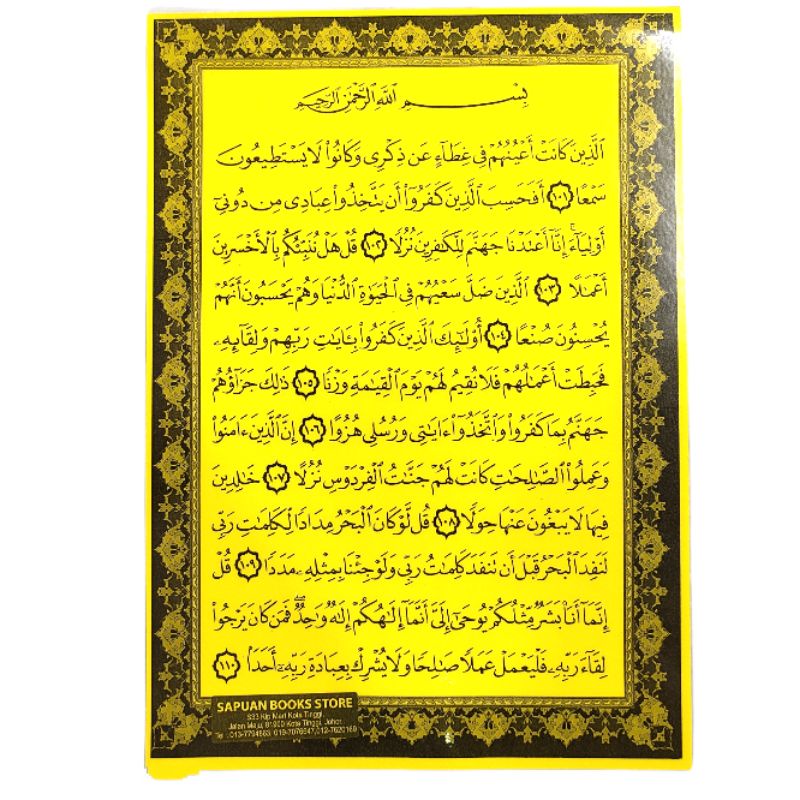 بِسْمِ ٱللَّهِ ٱلرَّحْمَٰنِ ٱلرَّحِيمِ
ٱلَّذِينَ كَانَتْ أَعْيُنُهُمْ فِى غِطَآءٍ عَن ذِكْرِى وَكَانُوا۟ لَا يَسْتَطِيعُونَ
سَمْعًا ١٠١ أَفَحَسِبَ ٱلَّذِينَ كَفَرُوٓا۟ أَن يَتَّخِذُوا۟ عِبَادِى مِن دُونِىٓ
أَوْلِيَآءَ ۚ إِنَّآ أَعْتَدْنَا جَهَنَّمَ لِلْكَٰفِرِينَ نُزُلًا ١٠٢ قُلْ هَلْ نُنَبِّئُكُم بِٱلْأَخْسَرِينَ
أَعْمَٰلًا ١٠٣ ٱلَّذِينَ ضَلَّ سَعْيُهُمْ فِى ٱلْحَيَوٰةِ ٱلدُّنْيَا وَهُمْ يَحْسَبُونَ أَنَّهُمْ
يُحْسِنُونَ صُنْعًا ١٠٤ أُو۟لَٰٓئِكَ ٱلَّذِينَ كَفَرُوا۟ بِـَٔايَٰتِ رَبِّهِمْ وَلِقَآئِهِۦ
فَحَبِطَتْ أَعْمَٰلُهُمْ فَلَا نُقِيمُ لَهُمْ يَوْمَ ٱلْقِيَٰمَةِ وَزْنًا ١٠٥ ذَٰلِكَ جَزَآؤُهُمْ
جَهَنَّمُ بِمَا كَفَرُوا۟ وَٱتَّخَذُوٓا۟ ءَايَٰتِى وَرُسُلِى هُزُوًا ١٠٦ إِنَّ ٱلَّذِينَ ءَامَنُوا۟
وَعَمِلُوا۟ ٱلصَّٰلِحَٰتِ كَانَتْ لَهُمْ جَنَّٰتُ ٱلْفِرْدَوْسِ نُزُلًا ١٠٧ خَٰلِدِينَ
فِيهَا لَا يَبْغُونَ عَنْهَا حِوَلًا ١٠٨ قُل لَّوْ كَانَ ٱلْبَحْرُ مِدَادًا لِّكَلِمَٰتِ رَبِّى
لَنَفِدَ ٱلْبَحْرُ قَبْلَ أَن تَنفَدَ كَلِمَٰتُ رَبِّى وَلَوْ جِئْنَا بِمِثْلِهِۦ مَدَدًا ١٠٩ قُلْ
إِنَّمَآ أَنَا۠ بَشَرٌ مِّثْلُكُمْ يُوحَىٰٓ إِلَىَّ أَنَّمَآ إِلَٰهُكُمْ إِلَٰهٌ وَٰحِدٌ ۖ فَمَن كَانَ يَرْجُوا۟
لِقَآءَ رَبِّهِۦ فَلْيَعْمَلْ عَمَلًا صَٰلِحًا وَلَا يُشْرِكْ بِعِبَادَةِ رَبِّهِۦٓ أَحَدًۢا ١١٠
SAPUAN BOOKS STORE
S33 Klp Mart Kota Tinggi,
Jalan Maju, 81900 Kota Tinggi, Johor.
Tel : 013-7794663, 019-7076647, 012-7620169